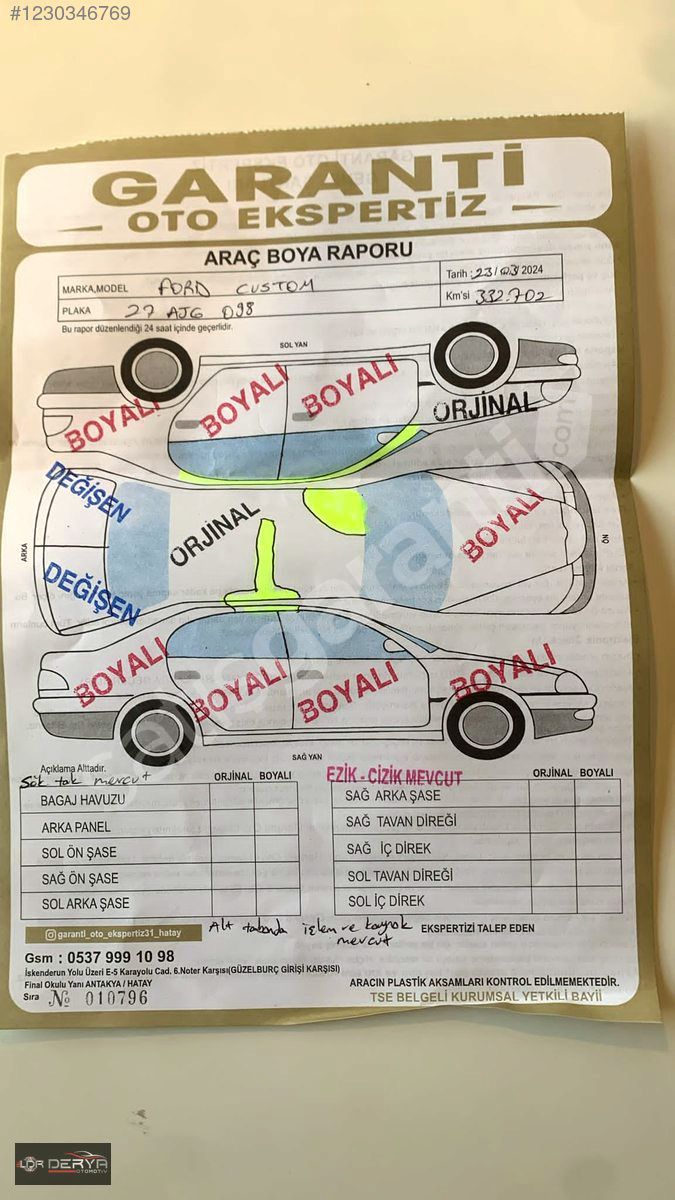 #1230346769
GARANTİ
OTO EKSPERTİZ
ARAÇ BOYA RAPORU
MARKA,MODEL FORD CUSTOM
Tarih : 23/03 2024
PLAKA 27 AJG 098
Km'si 332.702
Bu rapor düzenlendiği 24 saat içinde geçerlidir.
SOL YAN
BOYALI
BOYALI
BOYALI
ORJİNAL
DEĞİŞEN
ORJİNAL
BOYALI
ARKA
ÖN
DEĞİŞEN
BOYALI
BOYALI
BOYALI
BOYALI
SAĞ YAN
Açıklama Alttadır.
Sök tak mevcut
ORJİNAL BOYALI
BAGAJ HAVUZU
ARKA PANEL
SOL ÖN ŞASE
SAĞ ÖN ŞASE
SOL ARKA ŞASE
EZİK - CİZİK MEVCUT
ORJİNAL BOYALI
SAĞ ARKA ŞASE
SAĞ TAVAN DİREĞİ
SAĞ İÇ DİREK
SOL TAVAN DİREĞİ
SOL İÇ DİREK
Alt tabanda işlem ve kaynak mevcut
EKSPERTİZİ TALEP EDEN
garanti_oto_ekspertiz31_hatay
Gsm : 0537 999 10 98
İskenderun Yolu Üzeri E-5 Karayolu Cad. 6.Noter Karşısı(GÜZELBURÇ GİRİŞİ KARŞISI)
Final Okulu Yanı ANTAKYA / HATAY
Sıra № 010796
ARACIN PLASTİK AKSAMLARI KONTROL EDİLMEMEKTEDİR.
TSE BELGELİ KURUMSAL YETKİLİ BAYİİ
DERYA
OTOMOTİV